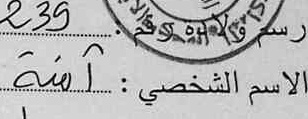 رسم ولادة رقم : 239
الاسم الشخصي : آمنة